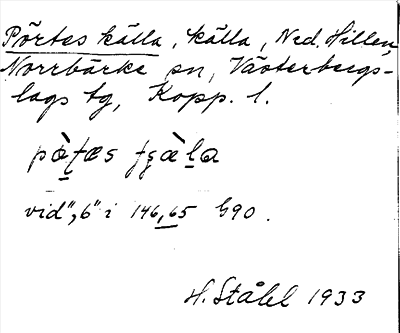 Pörtes källa, källa, Ned. Hillen,
Norrbärke sn, Västerbergs-
lags tg, Kopp. l.
vid ", 6" i 146,65 G90.
H. Ståhl 1933